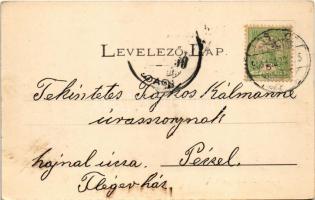 LEVELEZŐ LAP.
Tekintetes Lajkos Kálmánné
úrasszonynak
hajnal utcza. Péczel.
Flégev ház.